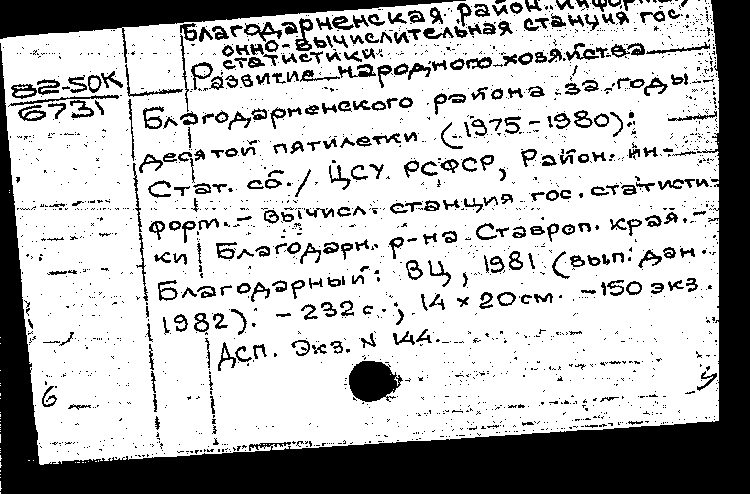 Благодарненская район. информаци-
онно-вычислительная станция гос.
статистики.
82-50К
6731
Развитие народного хозяйства
Благодарненского района за годы
десятой пятилетки (1975-1980):
Стат. сб./ ЦСУ РСФСР, Район. ин-
форм.-вычисл. станция гос. статисти-
ки Благодарн. р-на Ставроп. края.-
Благодарный: ВЦ, 1981 (вып. дан.
1982). - 232 с.; 14 × 20 см. - 150 экз.
ДСП. Экз. N 144.
6